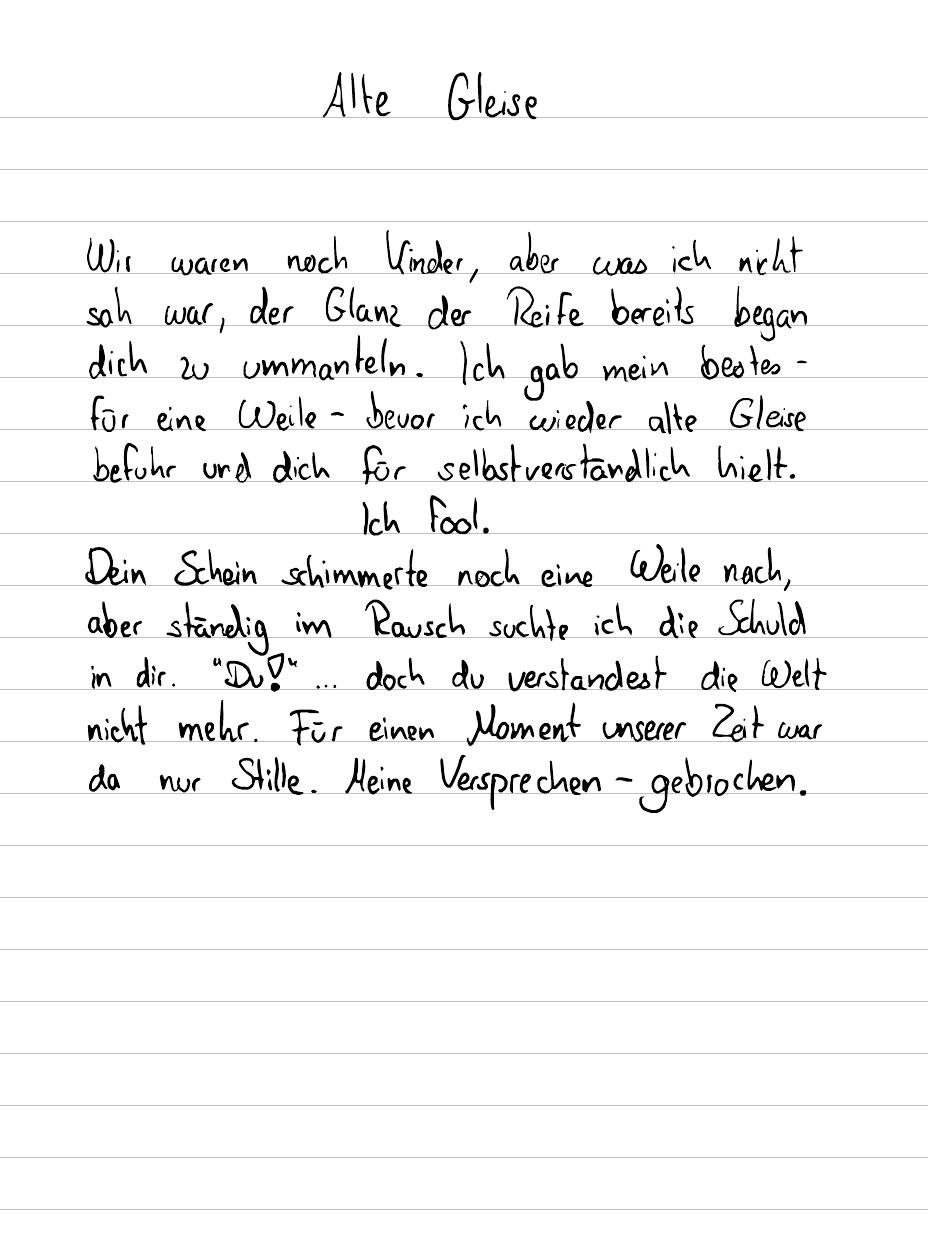 Alte Gleise
Wir waren noch Kinder, aber was ich nicht
sah war, der Glanz der Reife bereits begann
dich zu ummanteln. Ich gab mein bestes -
für eine Weile - bevor ich wieder alte Gleise
befuhr und dich für selbstverständlich hielt.
Ich Fool.
Dein Schein schimmerte noch eine Weile nach,
aber ständig im Rausch suchte ich die Schuld
in dir. "Du!" ... doch du verstandest die Welt
nicht mehr. Für einen Moment unserer Zeit war
da nur Stille. Meine Versprechen - gebrochen.